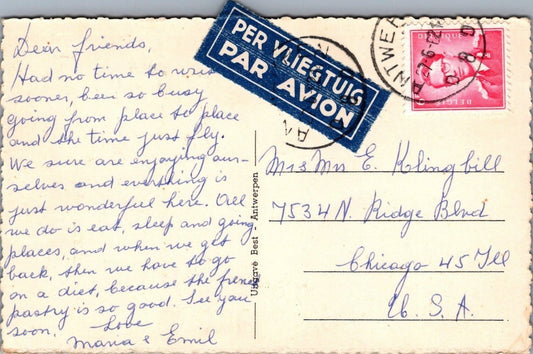 Dear friends,
Had no time to write
sooner, been so busy
going from place to place
and the time just fly.
We sure are enjoying our-
selves and everything is
just wonderful here. All
we do is eat, sleep and going
places, and when we get
back, then we have to go
on a diet, because the french
pastry is so good. See you
soon. Love
Maria & Emil
PER VLIEGTUIG
PAR AVION
ANTWERPEN
BELGIE
Uitgave Best - Antwerpen
Mr & Mrs E. Klingbill
7534 N. Ridge Blvd
Chicago 45 Ill
U. S. A.